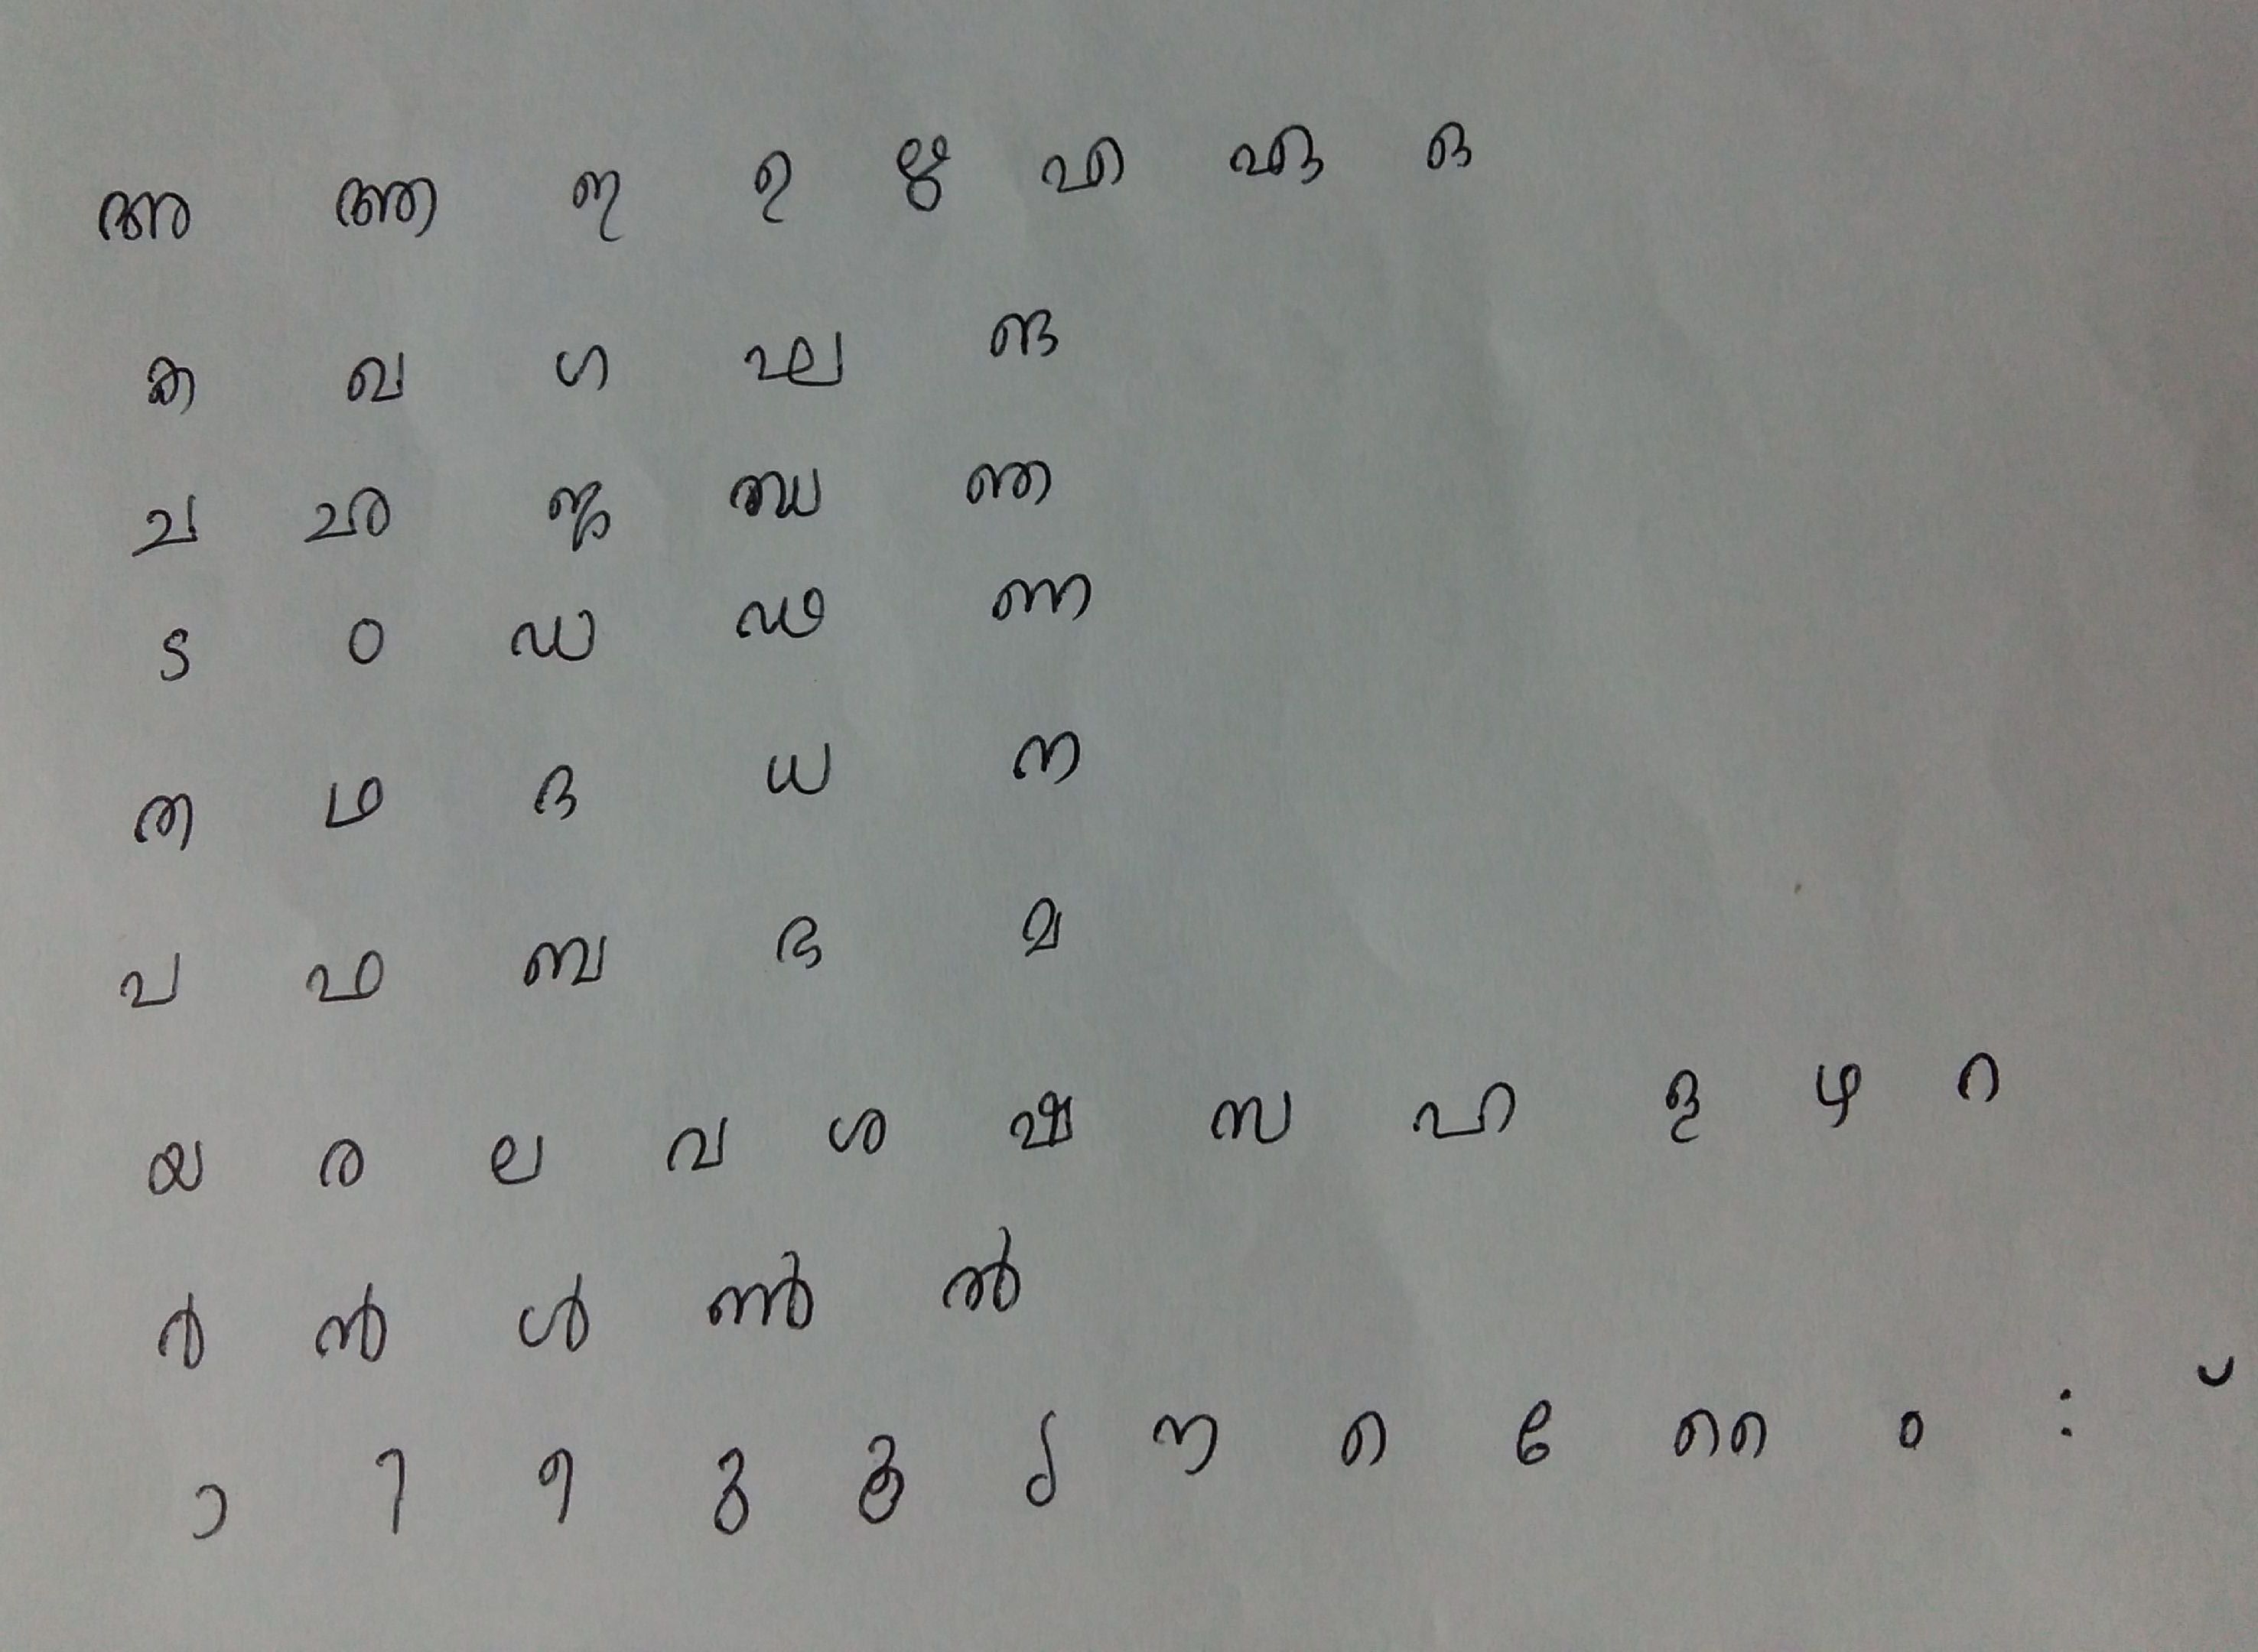 അ ആ ഇ ഉ ഋ എ ഏ ഒ
ക ഖ ഗ ഘ ങ
ച ഛ ജ ഝ ഞ
ട ഠ ഡ ഢ ണ
ത ഥ ദ ധ ന
പ ഫ ബ ഭ മ
യ ര ല വ ശ ഷ സ ഹ ള ഴ റ
ർ ൻ ൾ ൺ ൽ
ാ ി ീ ു ൂ ൃ ൗ െ േ ൈ ം ഃ ്